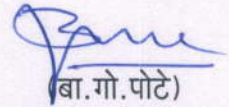 (बा.गो.पोटे)